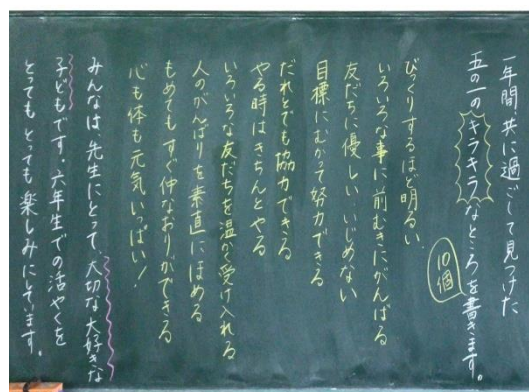 一年間共に過ごして見つけた
五の一のキラキラなところを書きます。
10個
びっくりするほど明るい
いろいろな事に前むきにがんばる
友だちに優しい、いじめない
目標にむかって努力できる
だれとでも協力できる
やる時はきちんとやる
いろいろな友だちを温かく受け入れる
人のがんばりを素直にほめる
もめてもすぐ仲なおりができる
心も体も元気いっぱい！
みんなは、先生にとって、大切な大好きな
子どもです。六年生での活やくを
とってもとっても楽しみにしています。